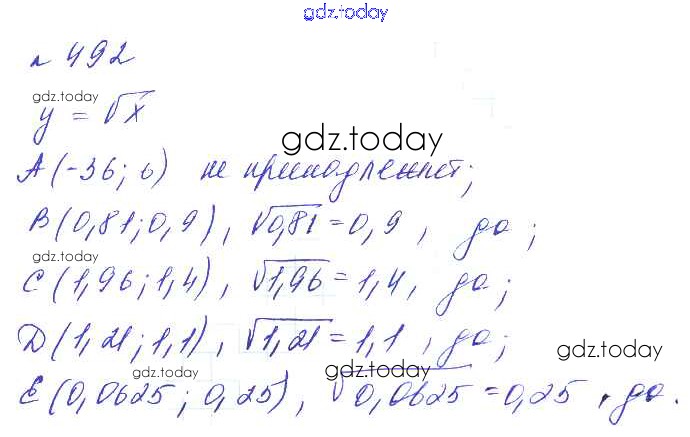 gdz.today
№ 492
gdz.today
y = √x
gdz.today
A(-36; 6) не принадлежит;
B(0,81; 0,9), √0,81 = 0,9, да;
gdz.today
C(1,96; 1,4), √1,96 = 1,4, да;
D(1,21; 1,1), √1,21 = 1,1, да;
gdz.today gdz.today gdz.today
E(0,0625; 0,25), √0,0625 = 0,25, да.